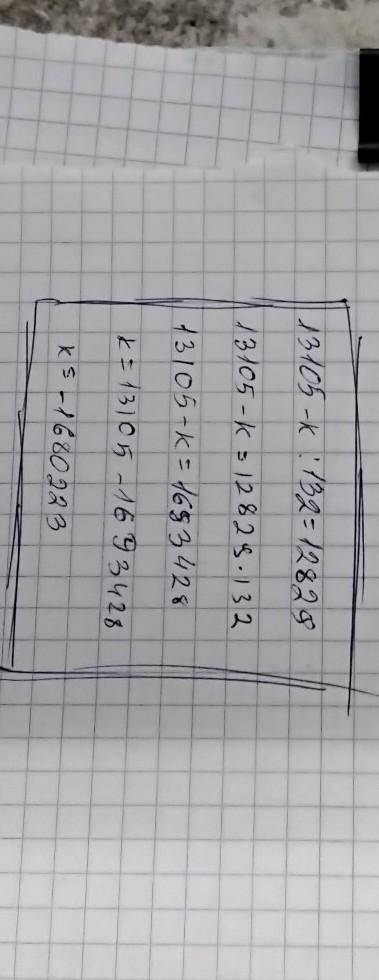 13105 - k : 132 = 12829
13105 - k = 12829 · 132
13105 - k = 1693428
k = 13105 - 1693428
k = -1680223